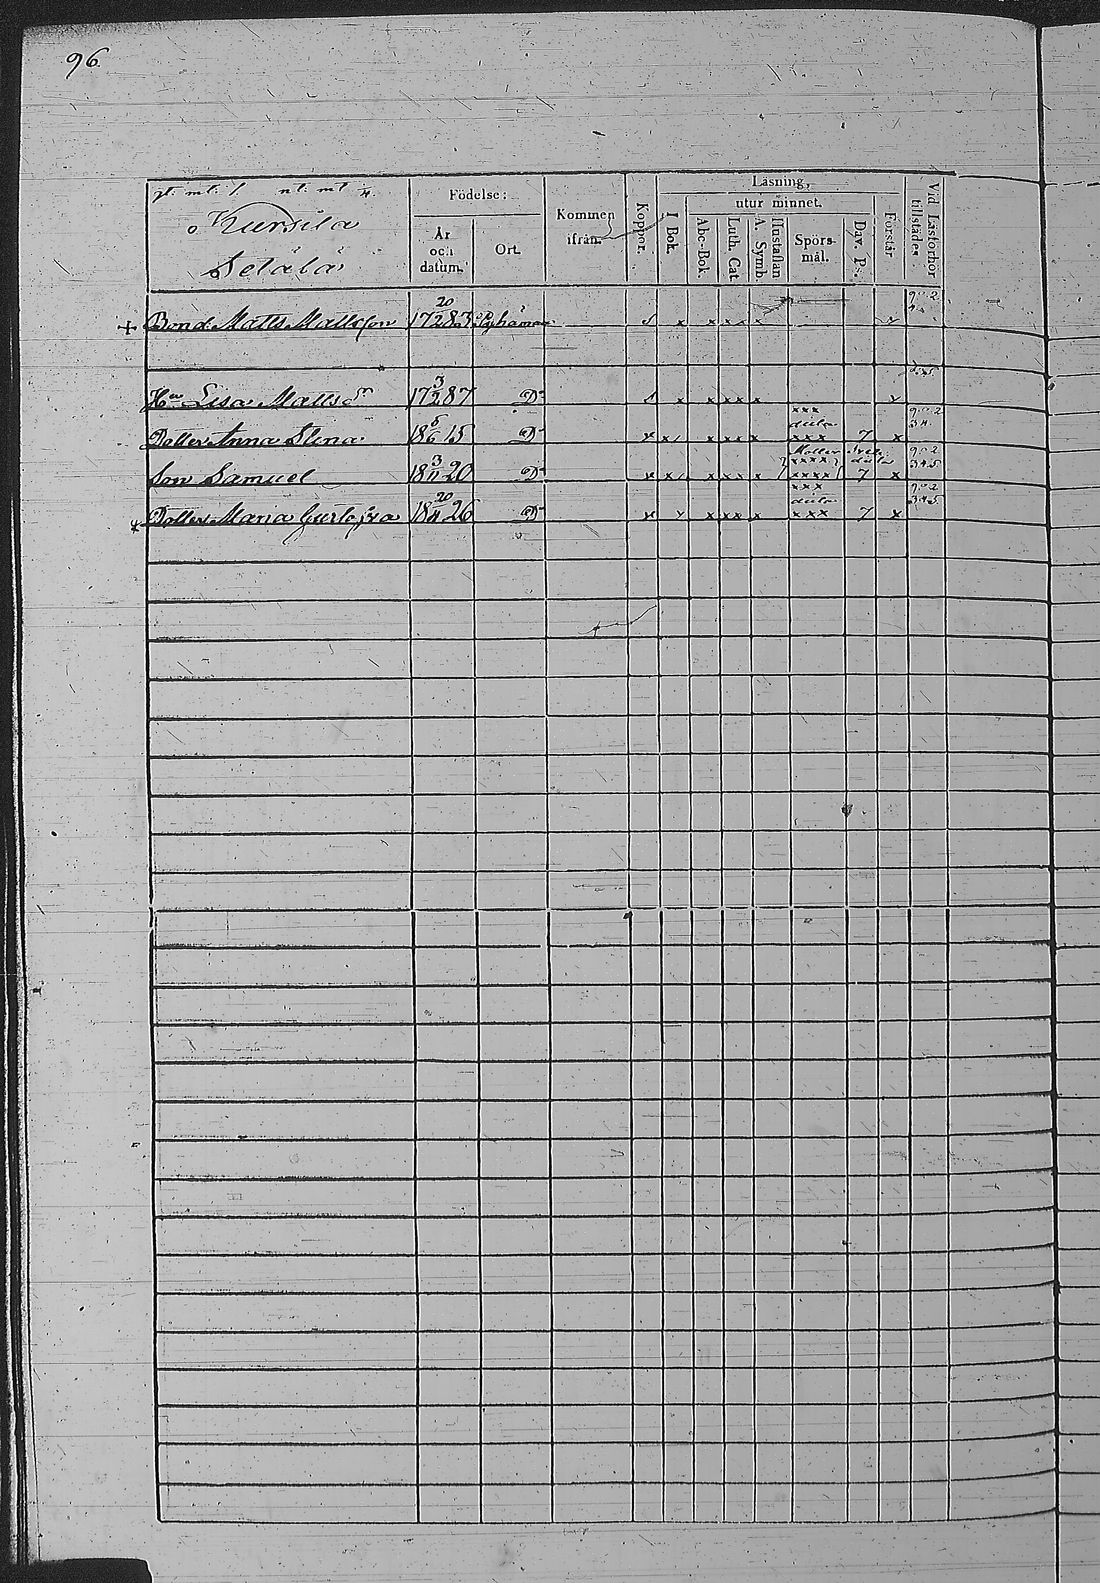 96
Kursila
Setälä
Födelse:
År och datum.
Ort.
Kommen ifrån.
Koppor.
Läsning,
I Bok.
utur minnet.
Abc-Bok.
Luth. Cat.
A. Symb.
Hustaflan
Spörsmål.
Dav. Ps.
Förstår
Vid Läsförhör tillstädes
+ Bond. Matts Mattsson 17 20/2 83 Pyhämaa x x x x x
Hu Lisa Matts Dr 17 3/2 87 D x x x x x
Dotter Anna Stina 18 5/6 15 D x x x x x x xxx 7 x
Son Samuel 18 3/11 20 D x x x x x x xxxx 7 x
Dotter Maria Gustafva 18 20/11 26 D x x x x x x xxx 7 x